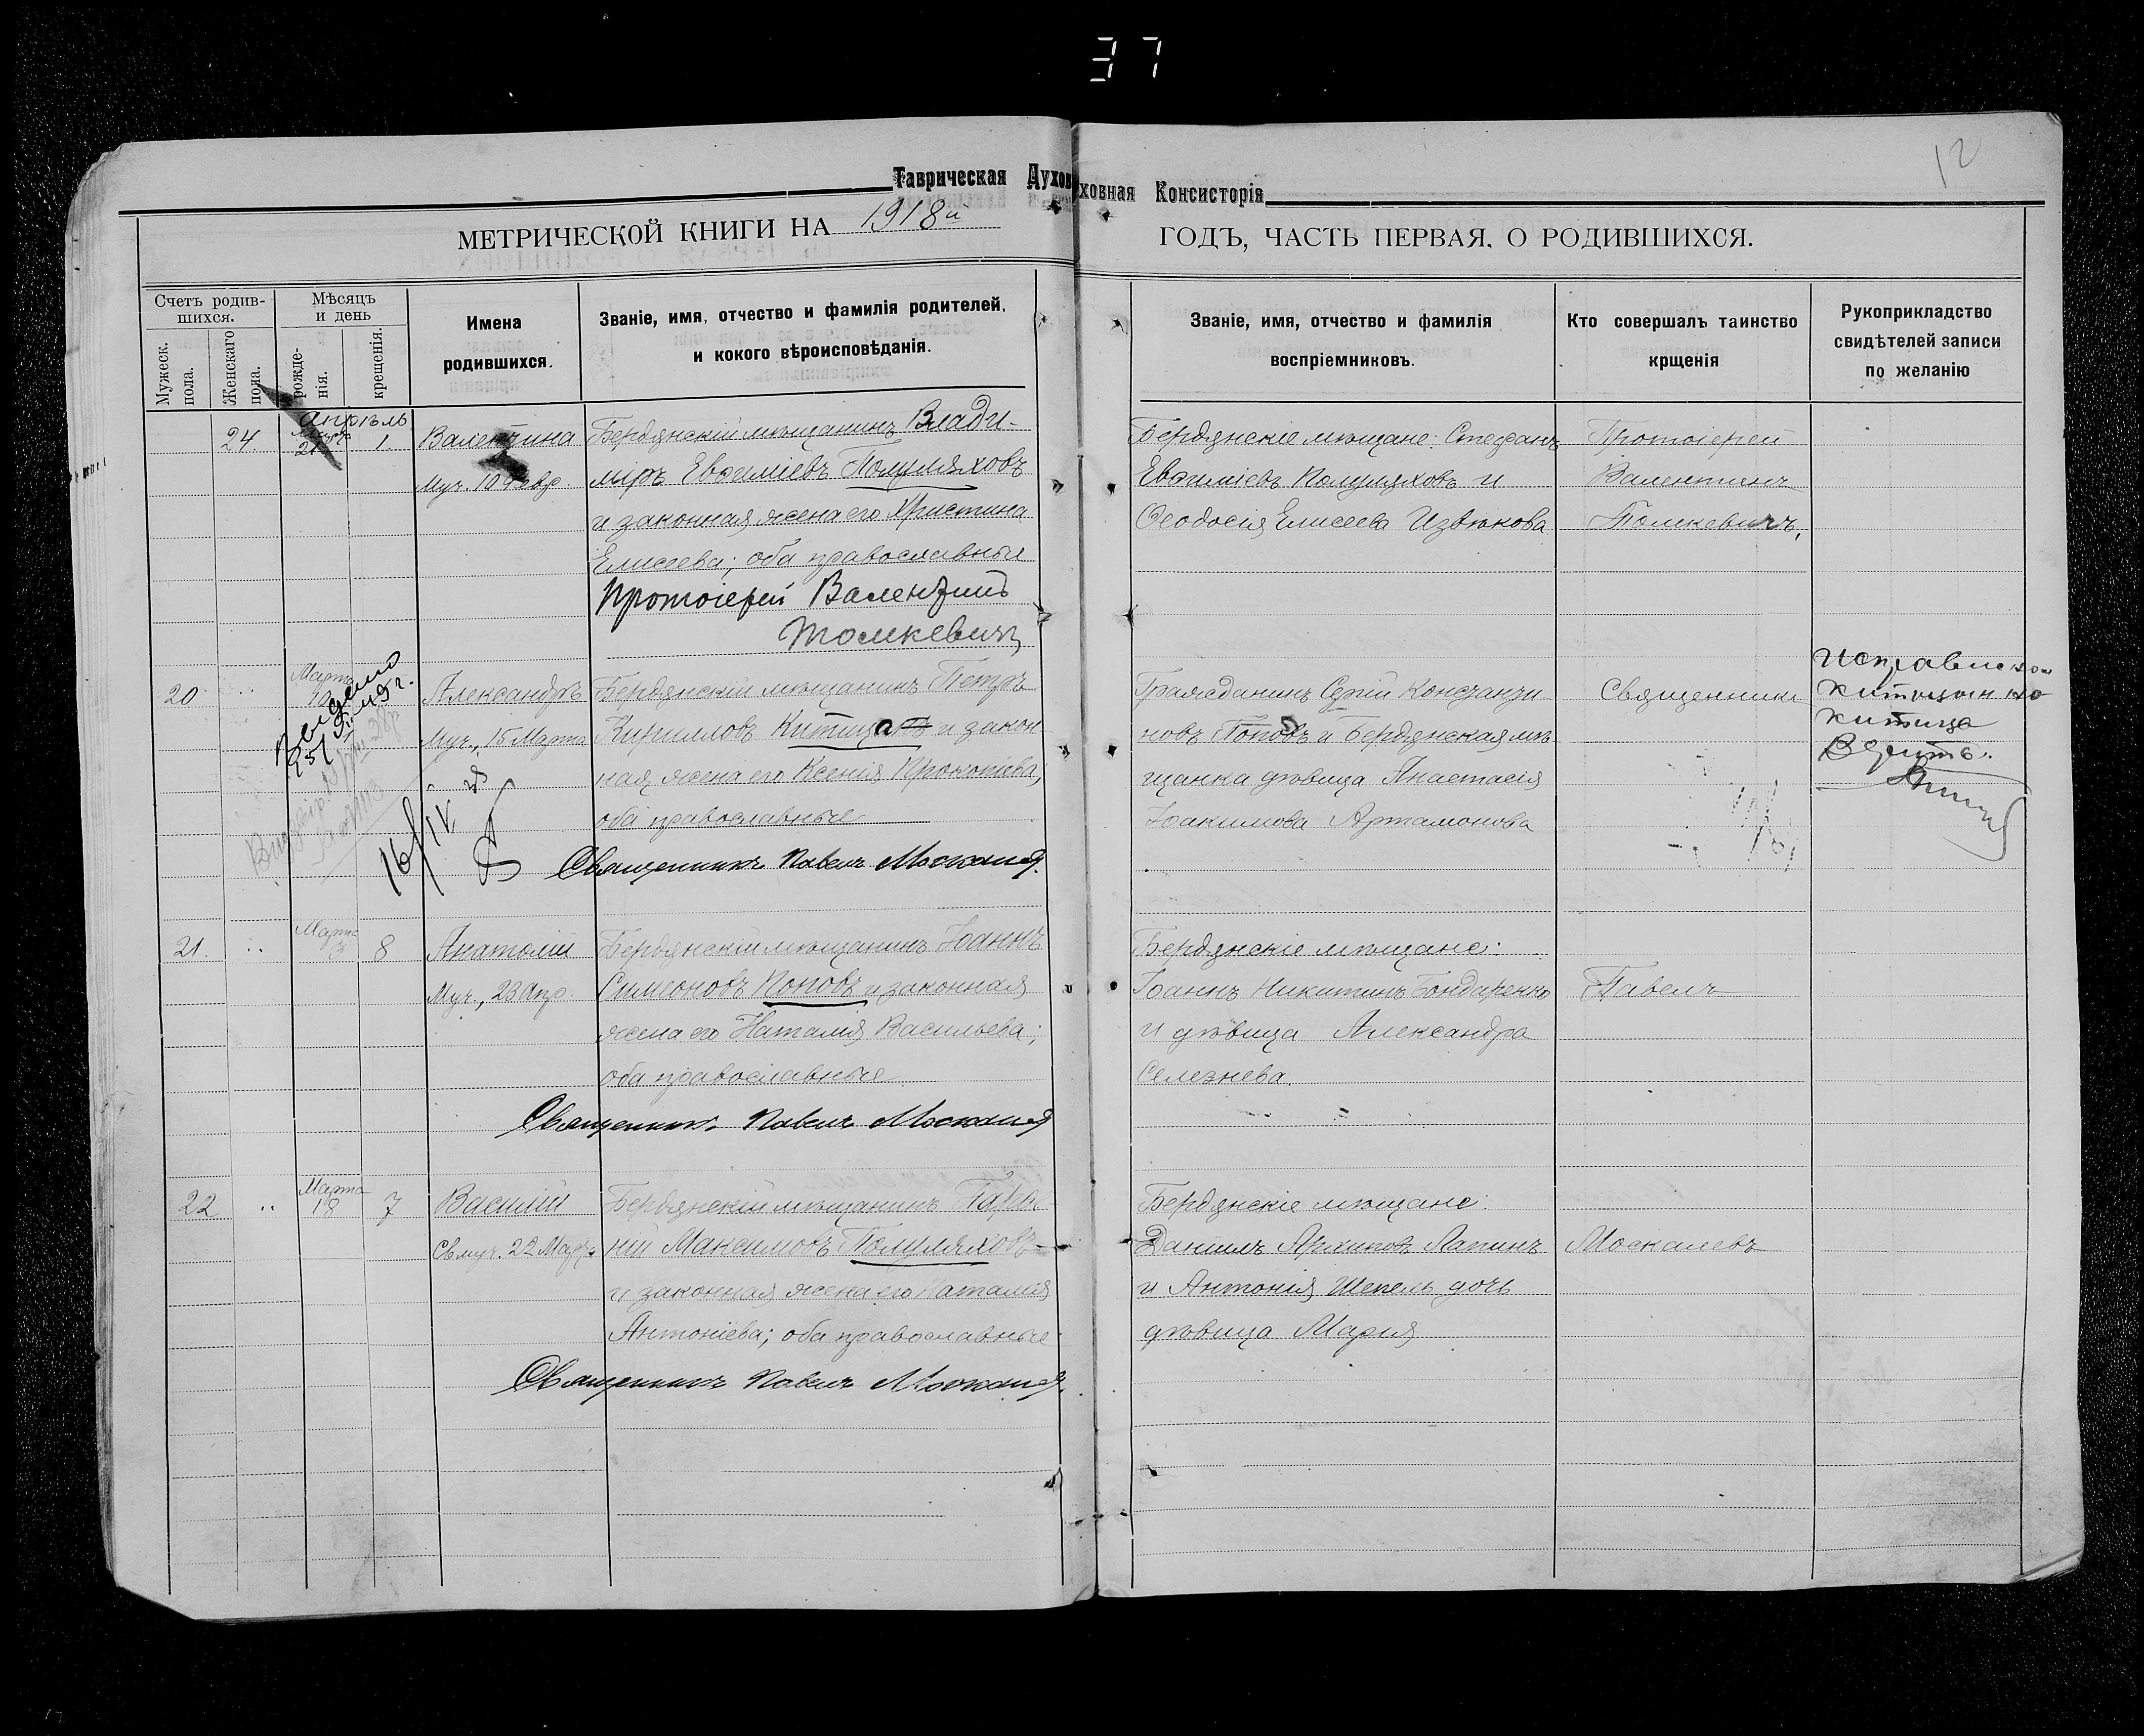 37
12
Таврическая Духов
ховная Консисторія
МЕТРИЧЕСКОЙ КНИГИ НА 1918й
ГОДЪ, ЧАСТЬ ПЕРВАЯ, О РОДИВШИХСЯ.
Счетъ родив-
шихся.
Мужеск.
пола.
Женскаго
пола.
Мѣсяцъ
и день
рожде-
нія.
крещенія.
Имена
родившихся.
Званіе, имя, отчество и фамилія родителей,
и кокого вѣроисповѣданія.
Званіе, имя, отчество и фамилія
воспріемниковъ.
Кто совершалъ таинство
крщенія
Рукоприкладство
свидѣтелей записи
по желанію
Апрѣль
24. 21 1. Валентина
Муч. 10 Февр.
Бердянскій мѣщанинъ Влади-
міръ Евѳиміевъ Полуляховъ
и законная жена его Христина
Елисеева; оба православные
Протоіерей Валентинъ
Толкевичъ
Бердянскіе мѣщане: Стефанъ
Евѳиміевъ Полуляховъ и
Ѳеодосія Елисеева Извѣкова
Протоіерей
Валентинъ
Толкевичъ,
Марта
20 Александръ
Муч., 15 Марта
16/IV 28
Бердянскій мѣщанинъ Петръ
Кирилловъ Китица и закон-
ная жена его Ксенія Прокопіева;
оба православные
Священникъ Павелъ Москалев
Гражданинъ Сергій Константи-
новъ Поповъ и Бердянская мѣ-
щанка дѣвица Анастасія
Іоакимова Артамонова
Священникъ
Исправлено
Китица
Вѣрить.
Марта
21. 3 8 Анатолій
Муч., 23 Апр.
Бердянскій мѣщанинъ Іоаннъ
Симеоновъ Поповъ и законная
жена его Наталія Васильева;
оба православные
Священникъ Павелъ Москалев
Бердянскіе мѣщане:
Іоаннъ Никитинъ Бондаренко
и дѣвица Александра
Селезнева.
Павелъ
Марта
22 18 7 Василій
Свмуч. 22 Марта
Бердянскій мѣщанинъ
Максимовъ Полуляховъ
и законная жена его Наталія
Антоніева; оба православные
Священникъ Павелъ Москалев
Бердянскіе мѣщане:
Даніилъ Архиповъ Лапинъ
и Антонія Шепель дочь
дѣвица Марія
Москалевъ